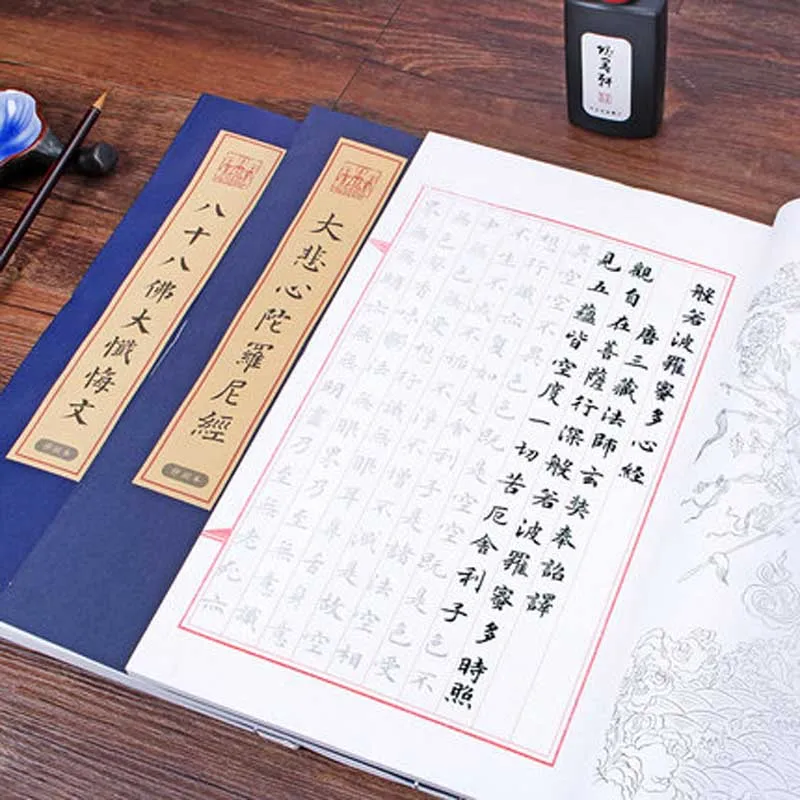 八十八佛大懺悔文
大悲心陀羅尼經
般若波羅蜜多心經
唐三藏法師玄奘奉詔譯
觀自在菩薩行深般若波羅蜜多時照
見五蘊皆空度一切苦厄舍利子色不
異空空不異色色既是空空既是色受
想行識亦復如是舍利子是諸法空相
不生不滅不垢不淨不增不減是故空
中無色無受想行識無眼耳鼻舌身意
無色聲香味觸法無眼界乃至無意識
界無無明亦無無明盡乃至無老死亦